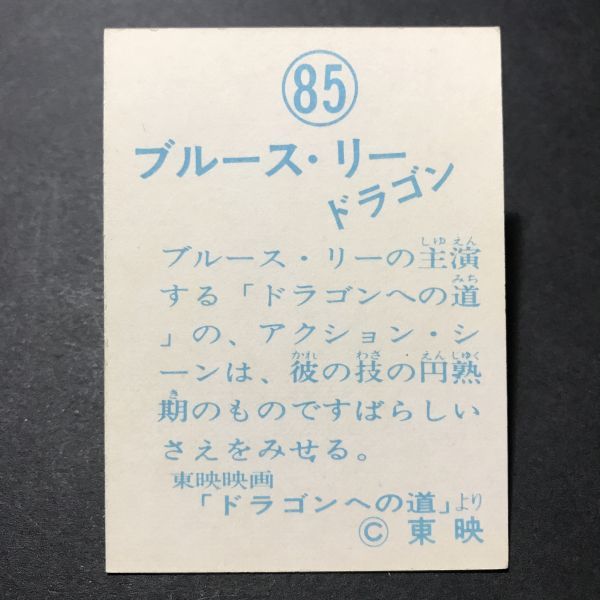 85
ブルース・リー
ドラゴン
ブルース・リーの主演
する「ドラゴンへの道
」の、アクション・シ
ーンは、彼の技の円熟
期のものですばらしい
さえをみせる。
東映映画
「ドラゴンへの道」より
© 東映